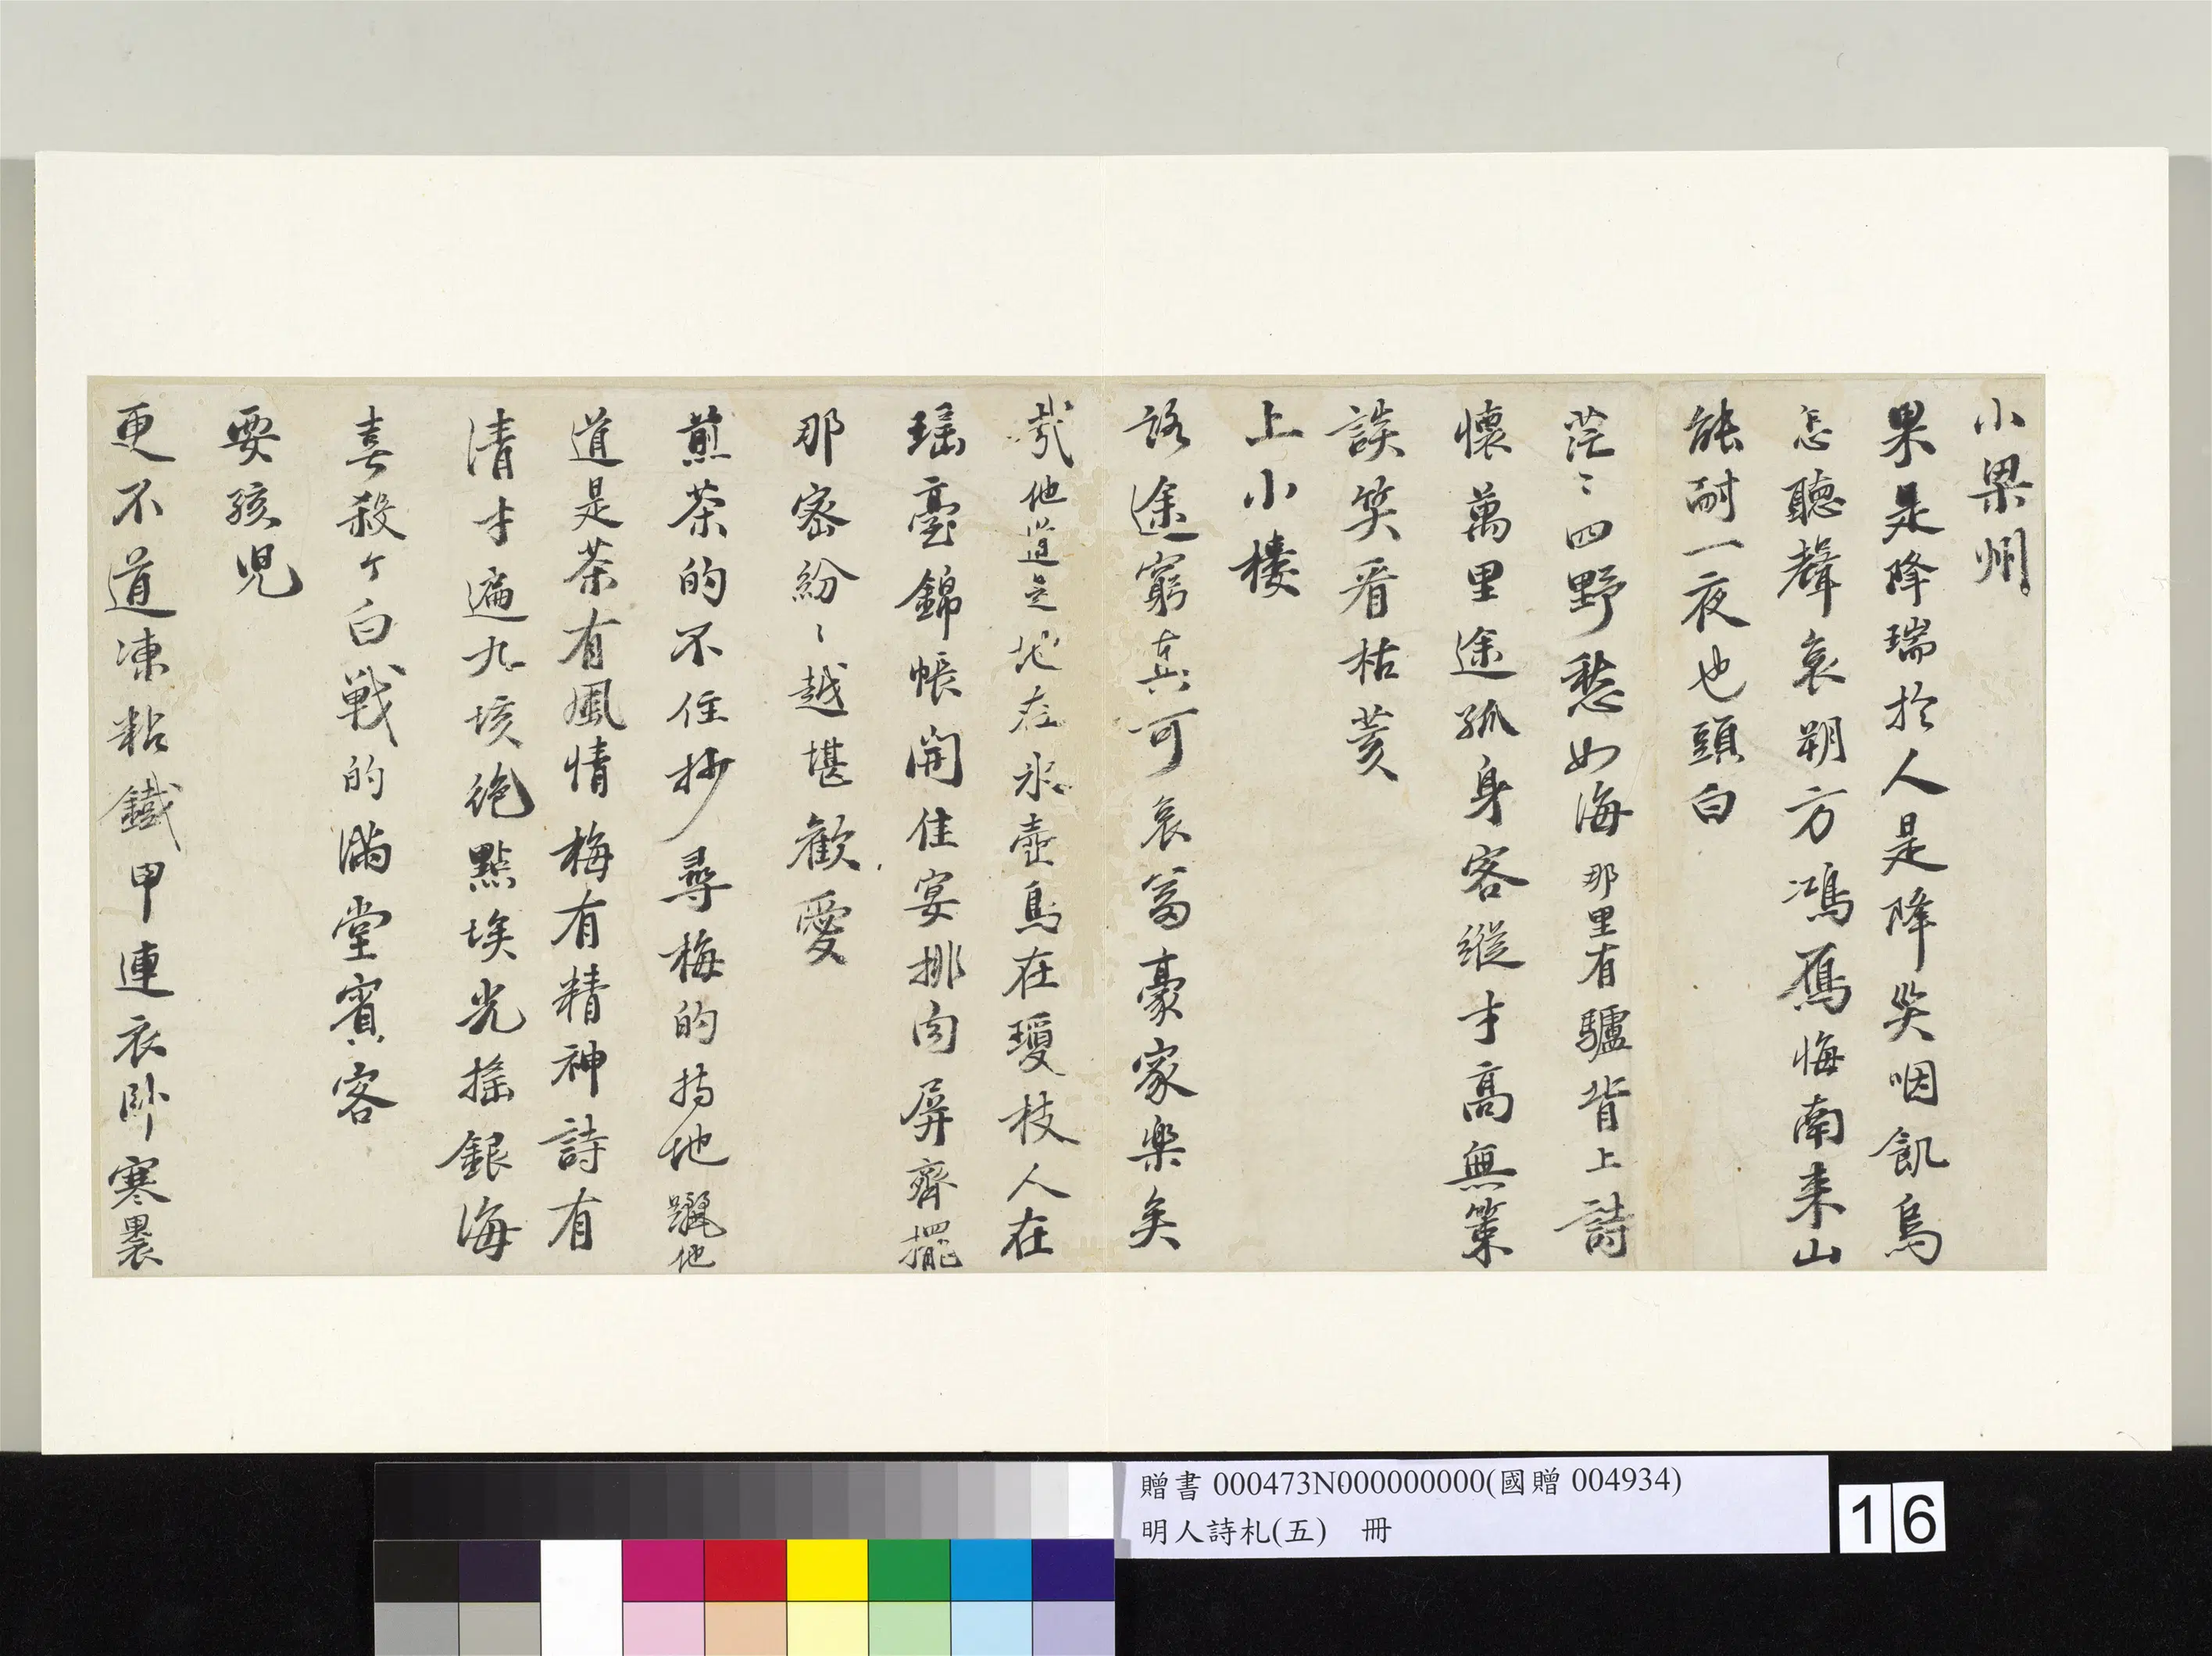 小梁州
果是降瑞於人是降災咽飢烏
怎聽聲哀朔方鴻鴈悔南来山
能耐一夜也頭白
茫〻四野愁如海那里有驢背上詩
懷萬里途孤身客縱才高無策
談笑看枯荄
上小樓
路途窮真可哀富豪家樂矣
他道是地在氷壺鳥在瓊枝人在
瑶臺錦帳開佳宴排肉屏齊擺
那密紛〻越堪歡愛
煎茶的不住抄尋梅的拷地躧他
道是茶有風情梅有精神詩有
清才遍九垓絶點埃光搖銀海
喜殺个白戰的滿堂賓客
耍孩兒
更不道凍粘鐵甲連衣卧寒裹
贈書 000473N000000000(國贈 004934)
明人詩札(五) 冊
16